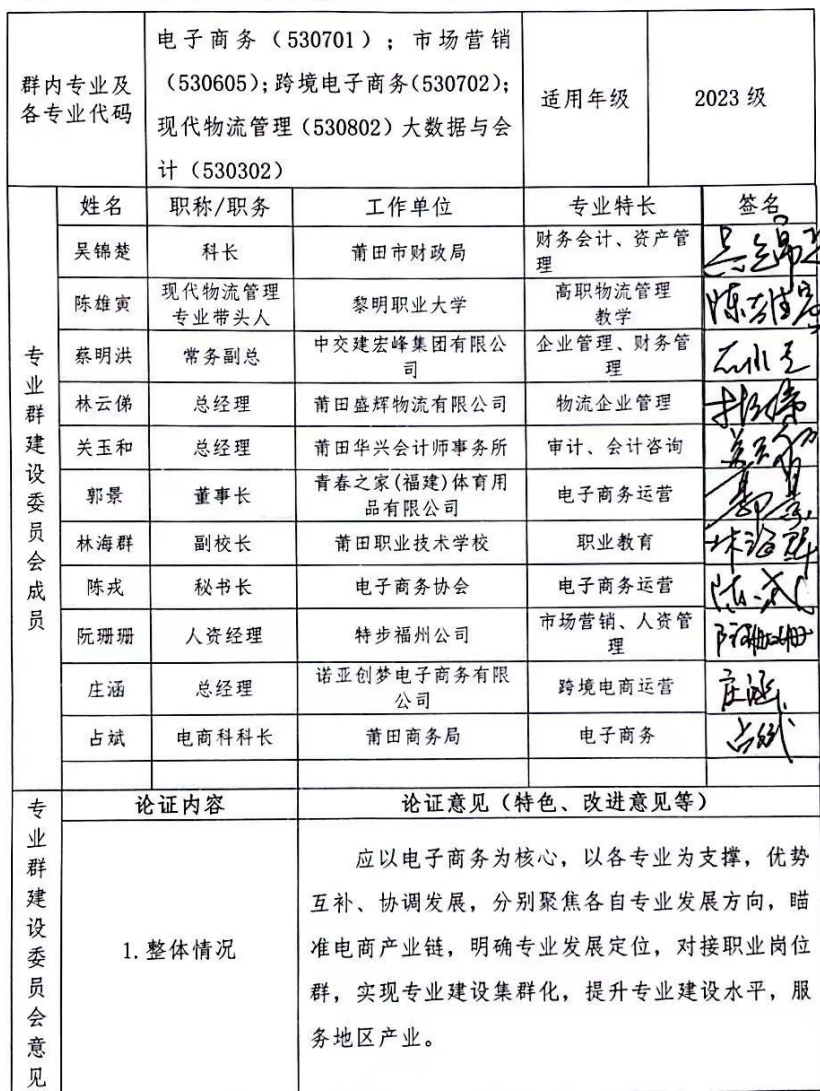 群内专业及各专业代码
电子商务（530701）；市场营销
（530605）；跨境电子商务(530702)；
现代物流管理（530802）大数据与会
计（530302）
适用年级
2023 级
专业群建设委员会成员
姓名 职称/职务 工作单位 专业特长 签名
吴锦楚 科长 莆田市财政局 财务会计、资产管理
陈雄寅 现代物流管理专业带头人 黎明职业大学 高职物流管理教学
蔡明洪 常务副总 中交建宏峰集团有限公司 企业管理、财务管理
林云俤 总经理 莆田盛辉物流有限公司 物流企业管理
关玉和 总经理 莆田华兴会计师事务所 审计、会计咨询
郭景 董事长 青春之家(福建)体育用品有限公司 电子商务运营
林海群 副校长 莆田职业技术学校 职业教育
陈戎 秘书长 电子商务协会 电子商务运营
阮珊珊 人资经理 特步福州公司 市场营销、人资管理
庄涵 总经理 诺亚创梦电子商务有限公司 跨境电商运营 庄涵
占斌 电商科科长 莆田商务局 电子商务 占斌
专业群建设委员会意见
论证内容 论证意见（特色、改进意见等）
1.整体情况
应以电子商务为核心，以各专业为支撑，优势
互补、协调发展，分别聚焦各自专业发展方向，瞄
准电商产业链，明确专业发展定位，对接职业岗位
群，实现专业建设集群化，提升专业建设水平，服
务地区产业。